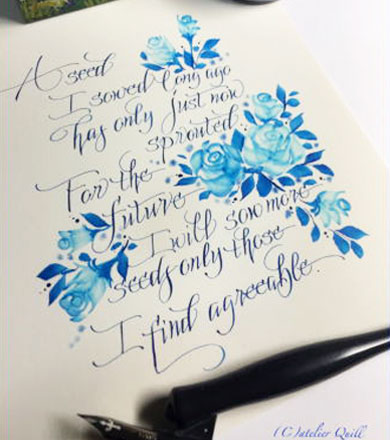 A seed
I sowed long ago
has only just now
sprouted.
For the
future
I will sow more
seeds only those
I find agreeable.
(C)atelier Quill